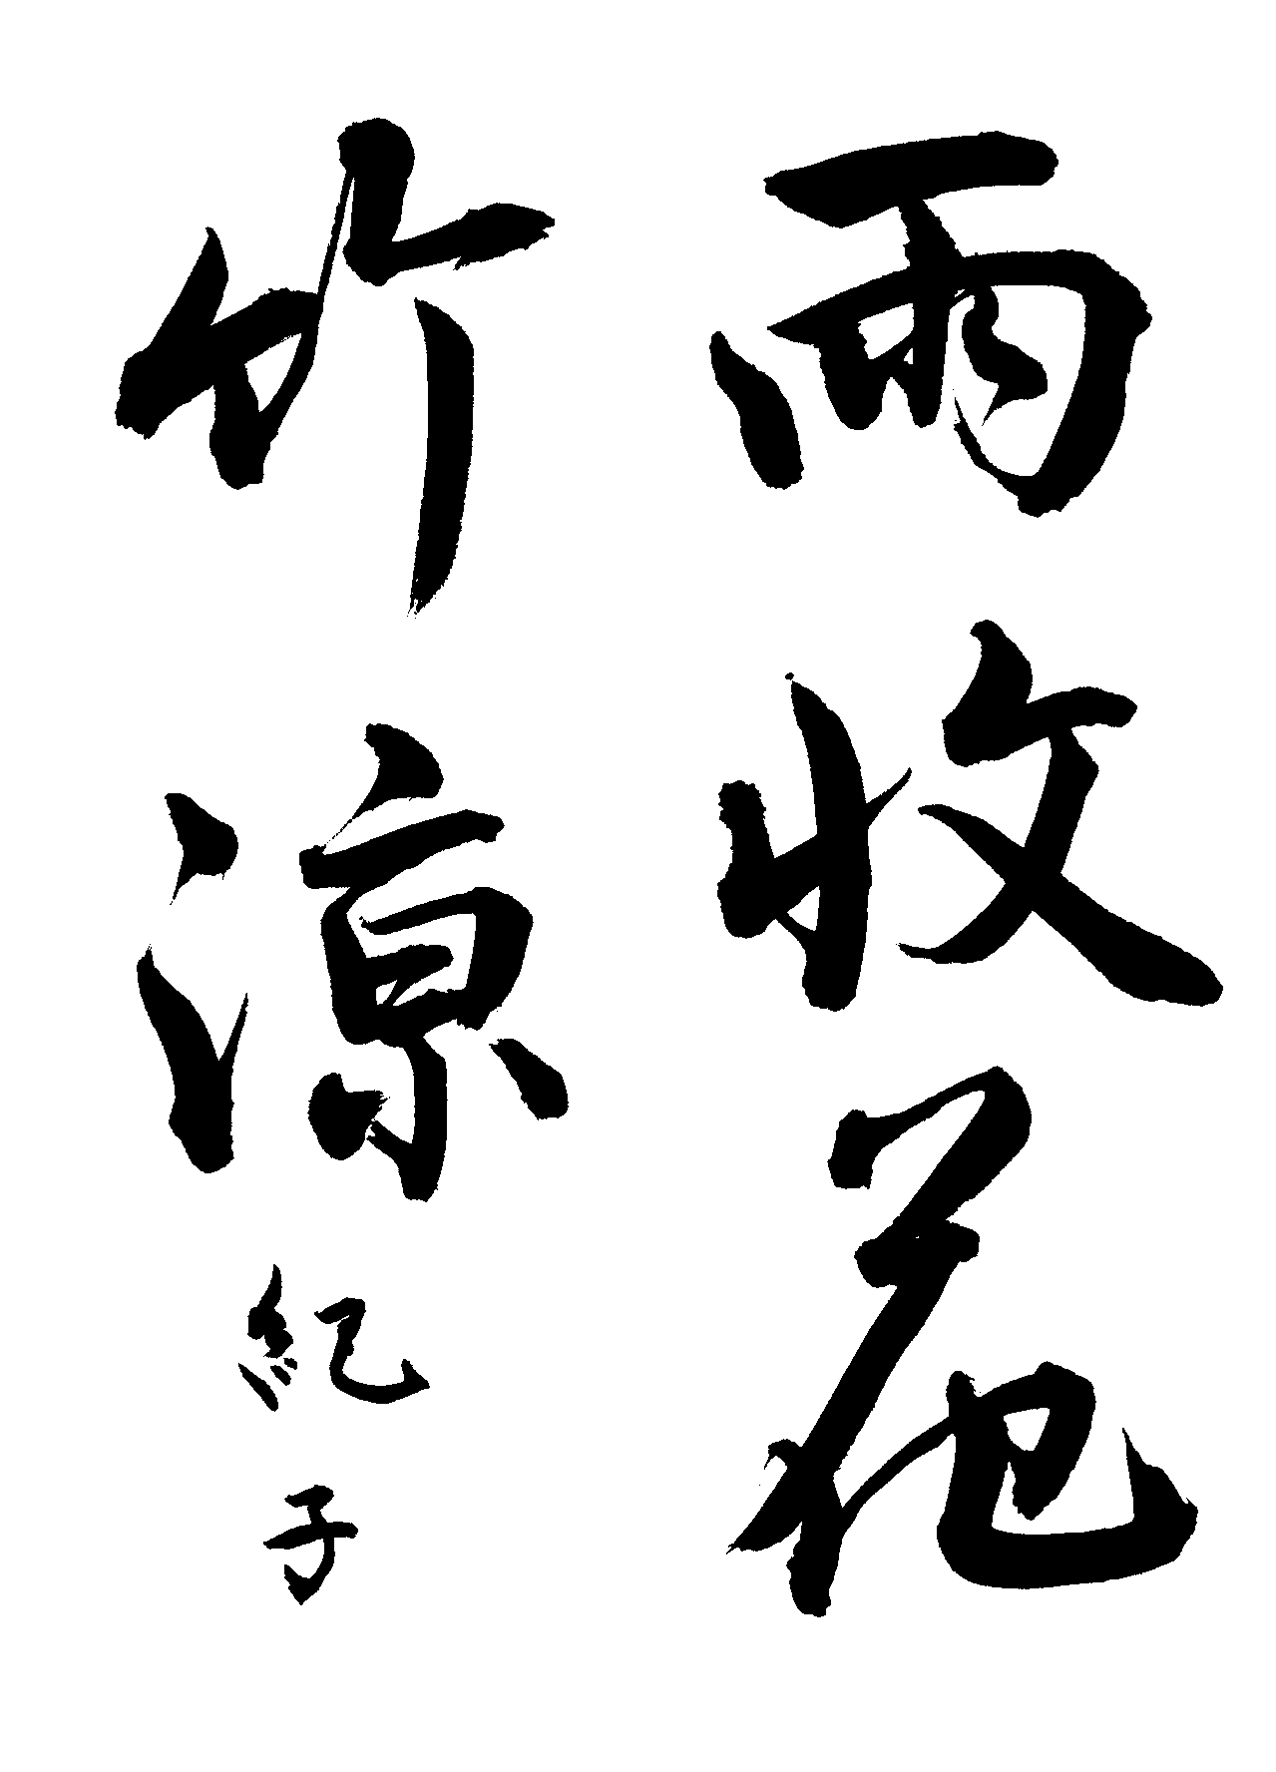 雨收花
竹涼
紀子